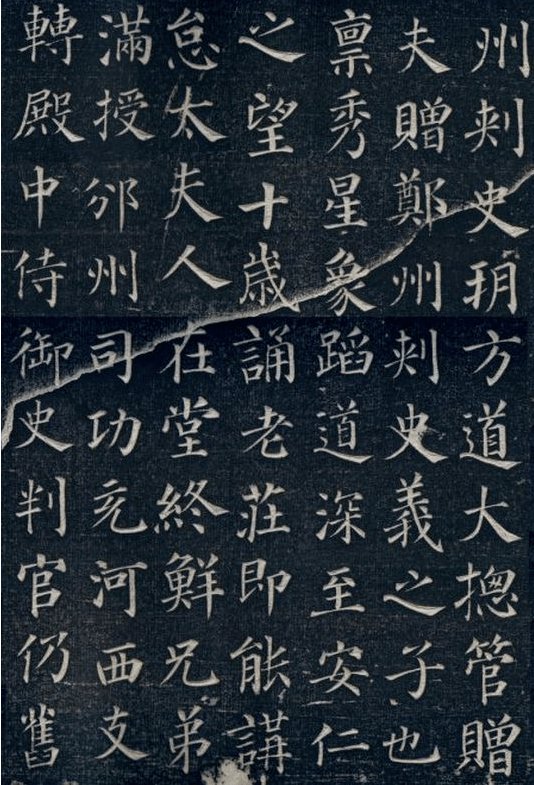 州刺史朔方道大摠管贈
夫贈鄭州刺史義之子也
禀秀星象蹈道深至安仁
之望十歲誦老莊即能講
怠太夫人在堂終鮮兄弟
滿授邠州司功充河西支
轉殿中侍御史判官仍舊